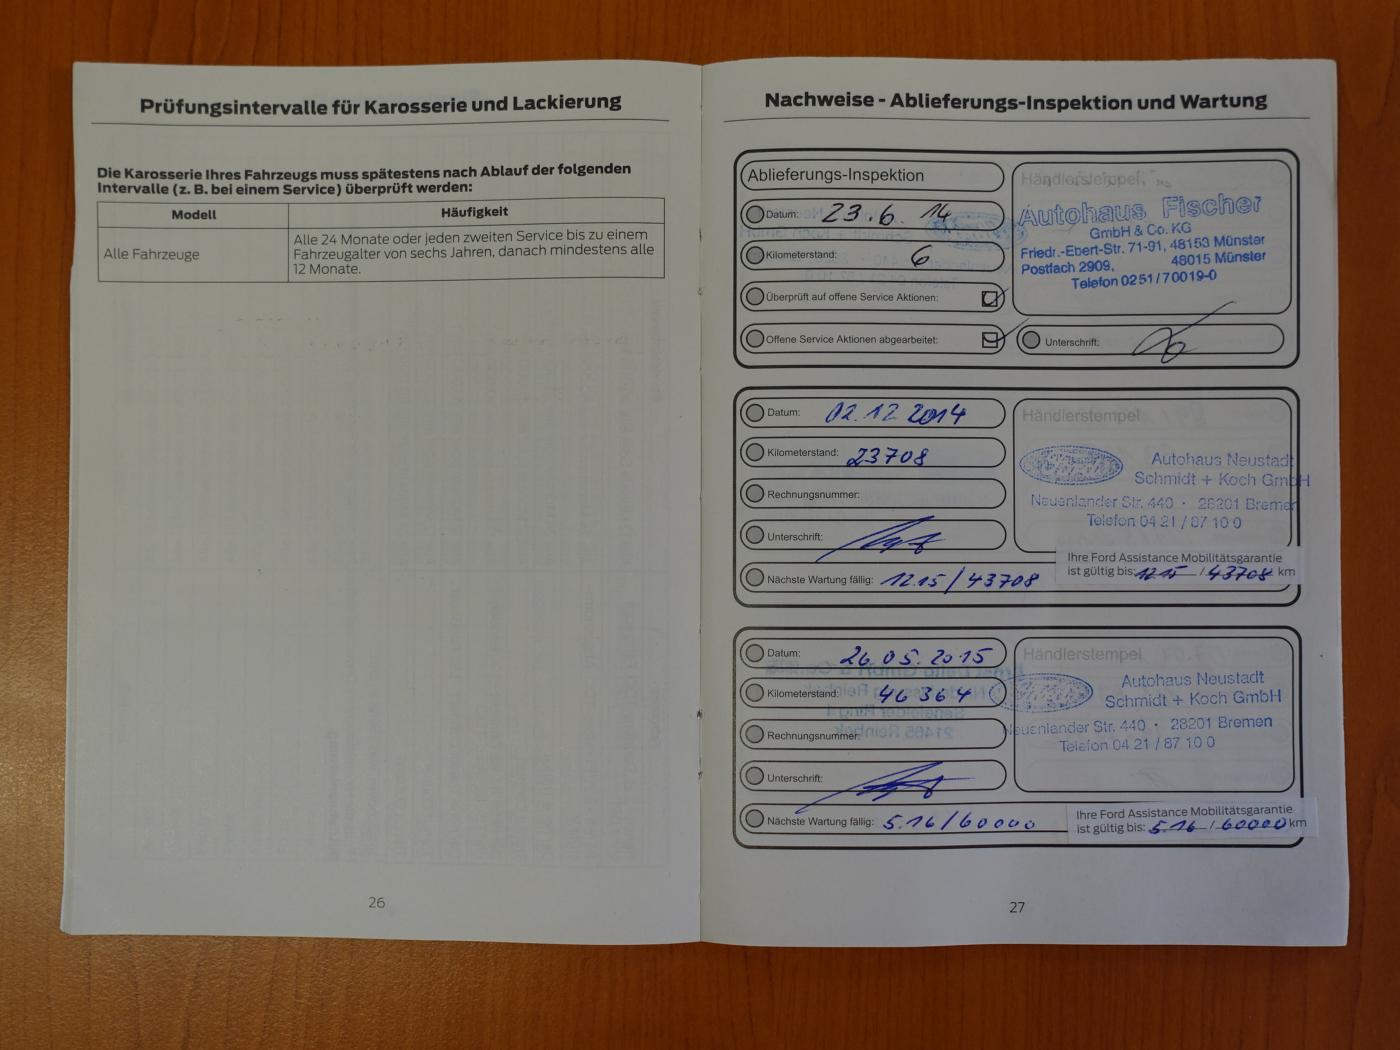 Prüfungsintervalle für Karosserie und Lackierung
Die Karosserie Ihres Fahrzeugs muss spätestens nach Ablauf der folgenden
Intervalle (z. B. bei einem Service) überprüft werden:
Modell
Häufigkeit
Alle Fahrzeuge
Alle 24 Monate oder jeden zweiten Service bis zu einem
Fahrzeugalter von sechs Jahren, danach mindestens alle
12 Monate.
26
Nachweise - Ablieferungs-Inspektion und Wartung
Ablieferungs-Inspektion
Datum: 23.6. 14
Kilometerstand: 6
Überprüft auf offene Service Aktionen:
Offene Service Aktionen abgearbeitet:
Händlerstempel
Autohaus Fischer
GmbH & Co. KG
Friedr.-Ebert-Str. 71-91, 48153 Münster
Postfach 2909, 48015 Münster
Telefon 0251/70019-0
Unterschrift:
Datum: 02.12 2014
Kilometerstand: 23708
Rechnungsnummer:
Unterschrift:
Nächste Wartung fällig: 12.15 / 43708
Händlerstempel
Autohaus Neustadt
Schmidt + Koch GmbH
Neuenlander Str. 440 · 28201 Bremen
Telefon 04 21 / 87 10 0
Ihre Ford Assistance Mobilitätsgarantie
ist gültig bis: 12.15 / 43708 km
Datum: 26.05.2015
Kilometerstand: 46364
Rechnungsnummer:
Unterschrift:
Nächste Wartung fällig: 5.16/60000
Händlerstempel
Autohaus Neustadt
Schmidt + Koch GmbH
Neuenlander Str. 440 · 28201 Bremen
Telefon 04 21 / 87 10 0
Ihre Ford Assistance Mobilitätsgarantie
ist gültig bis: 5.16 / 60000 km
27